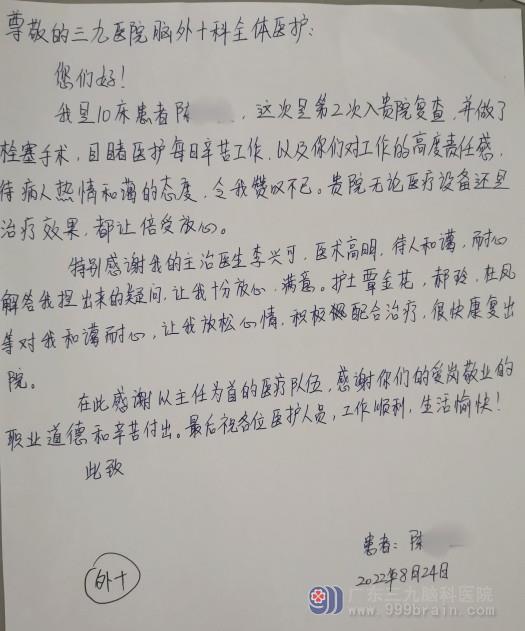 尊敬的三九医院脑外十科全体医护:
您们好!
我是10床患者陈 ,这次是第2次入贵院复查,并做了
栓塞手术,目睹医护每日辛苦工作,以及你们对工作的高度责任感,
待病人热情和蔼的态度,令我赞叹不已。贵院无论医疗设备还是
治疗效果,都让倍受放心。
特别感谢我的主治医生李兴可,医术高明,待人和蔼,耐心
解答我提出来的疑问,让我十分放心、满意。护士覃金花,郝玲,杜凤
等对我和蔼耐心,让我放松心情,积极配合治疗,很快康复出
院。
在此感谢以主任为首的医疗队伍,感谢你们的爱岗敬业的
职业道德和辛苦付出。最后祝各位医护人员,工作顺利,生活愉快!
此致
患者:陈
2022年8月24日
外十
广东三九脑科医院
www.999brain.com